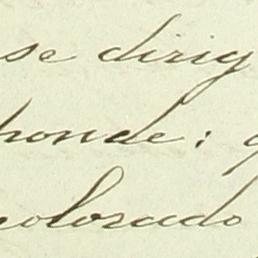 se dirig
ponde: g
colorado